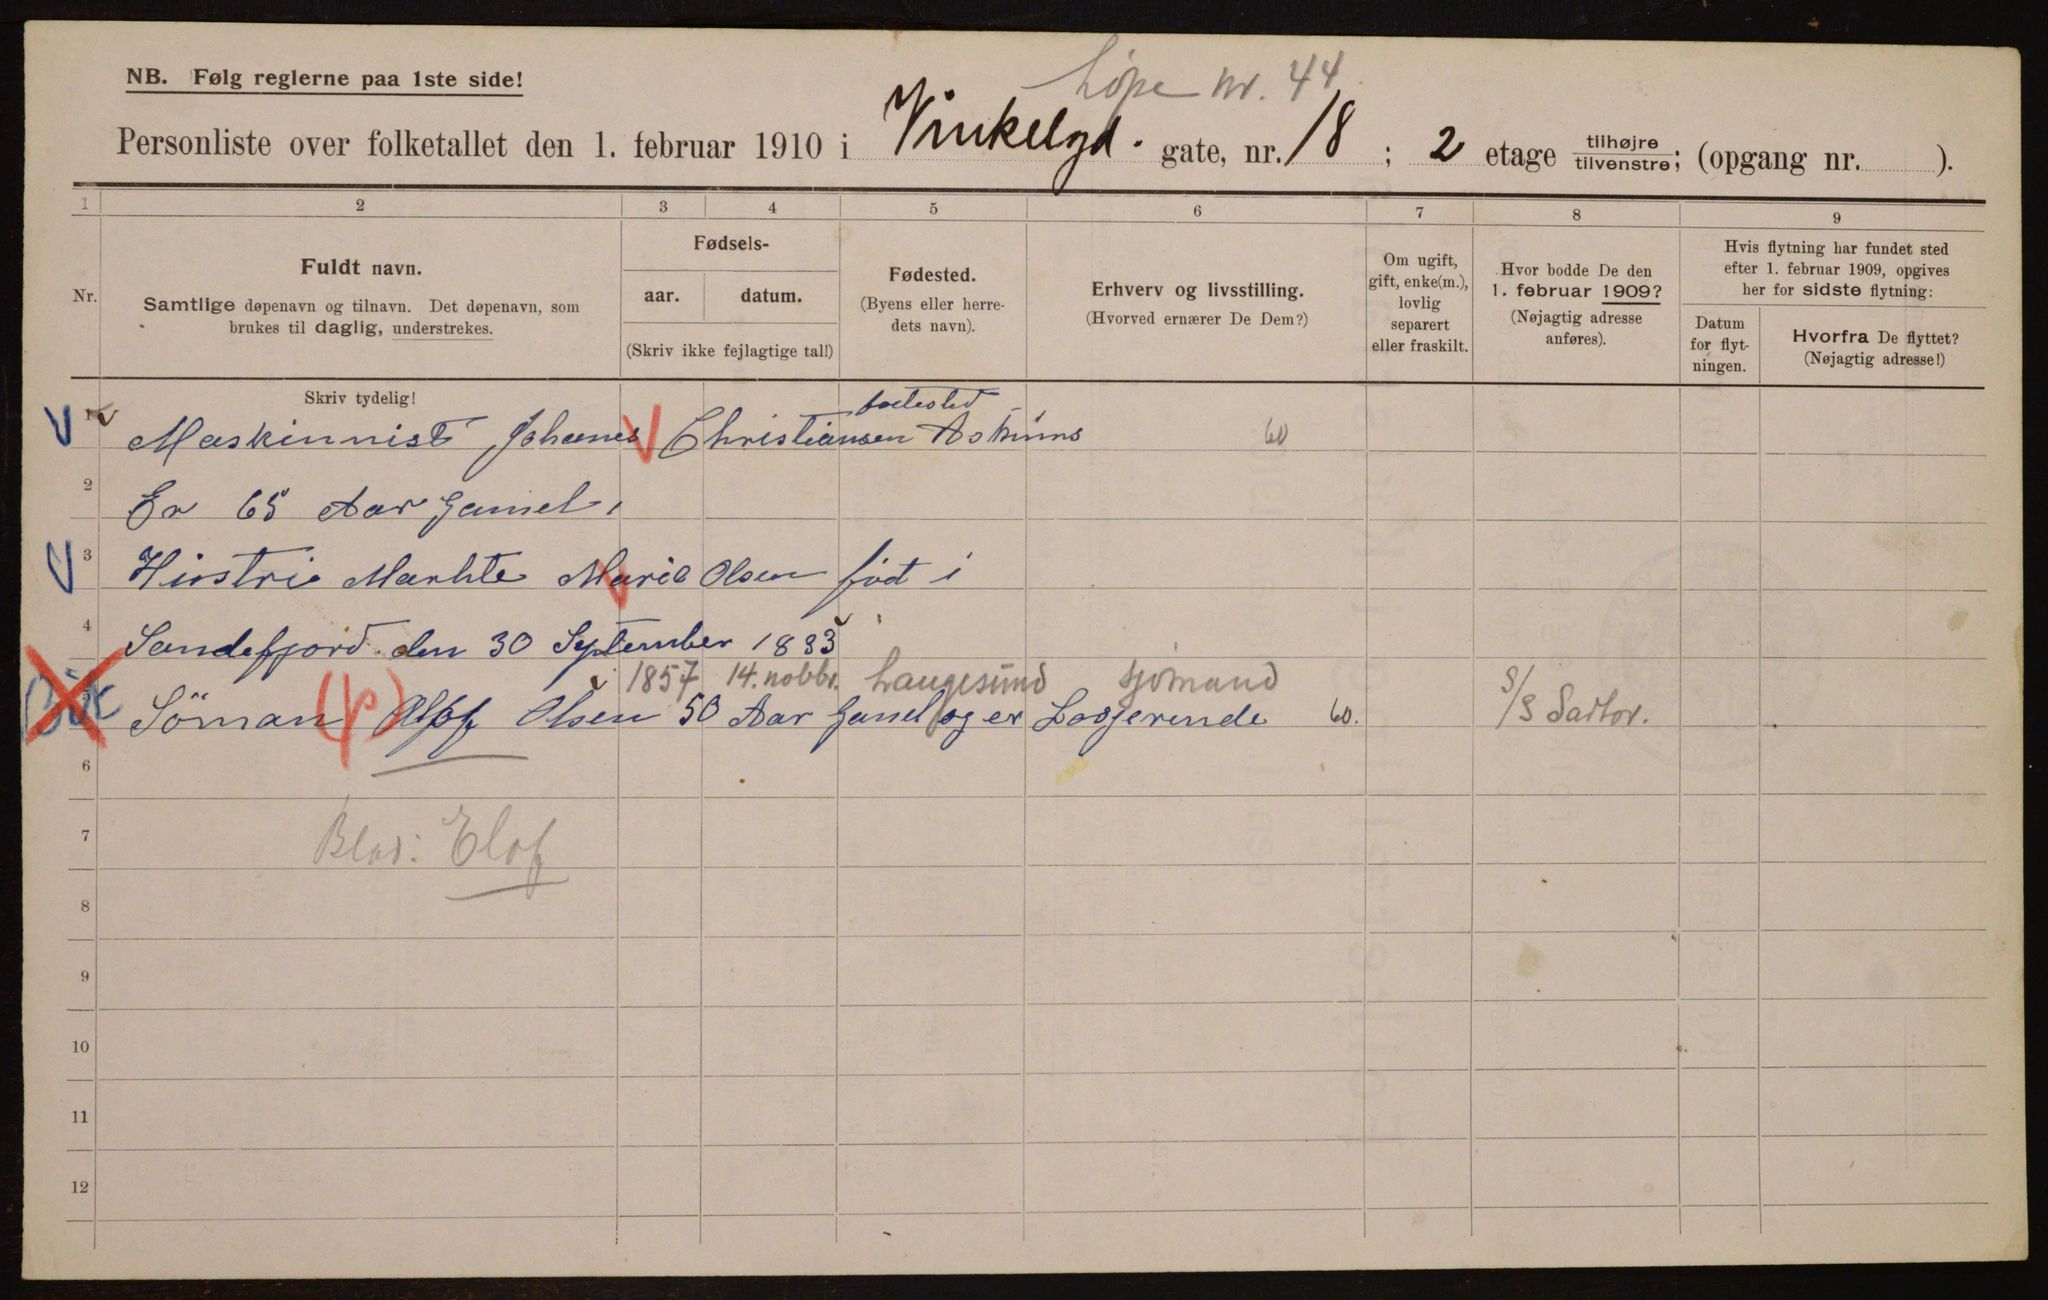 Løpe nr. 44
NB. Følg reglerne paa 1ste side!
Personliste over folketallet den 1. februar 1910 i Vinkelgd. gate, nr. 18 ; 2 etage tilhøjre tilvenstre; (opgang nr. ).
1 2 3 4 5 6 7 8 9
Nr.
Fuldt navn.
Samtlige døpenavn og tilnavn. Det døpenavn, som
brukes til daglig, understrekes.
Fødsels-
aar. datum.
(Skriv ikke fejlagtige tal!)
Fødested.
(Byens eller herre-
dets navn).
Erhverv og livsstilling.
(Hvorved ernærer De Dem?)
Om ugift,
gift, enke(m.),
lovlig
separert
eller fraskilt.
Hvor bodde De den
1. februar 1909?
(Nøjagtig adresse
anføres).
Hvis flytning har fundet sted
efter 1. februar 1909, opgives
her for sidste flytning:
Datum
for flyt-
ningen.
Hvorfra De flyttet?
(Nøjagtig adresse!)
Skriv tydelig!
1 Maskinnist Johanes Christiansen 60
2 Er 65 Aar Gamel.
3 Hiostrie Marhte Marie Olsen født i
4 Sandefjord den 30 September 1833
1857 14. novbr. Langesund sjømand
5 Söman Olof Olsen 50 Aar Gamel og er Losjerende 60. S/S Sartor.
6
7 Elof
8
9
10
11
12